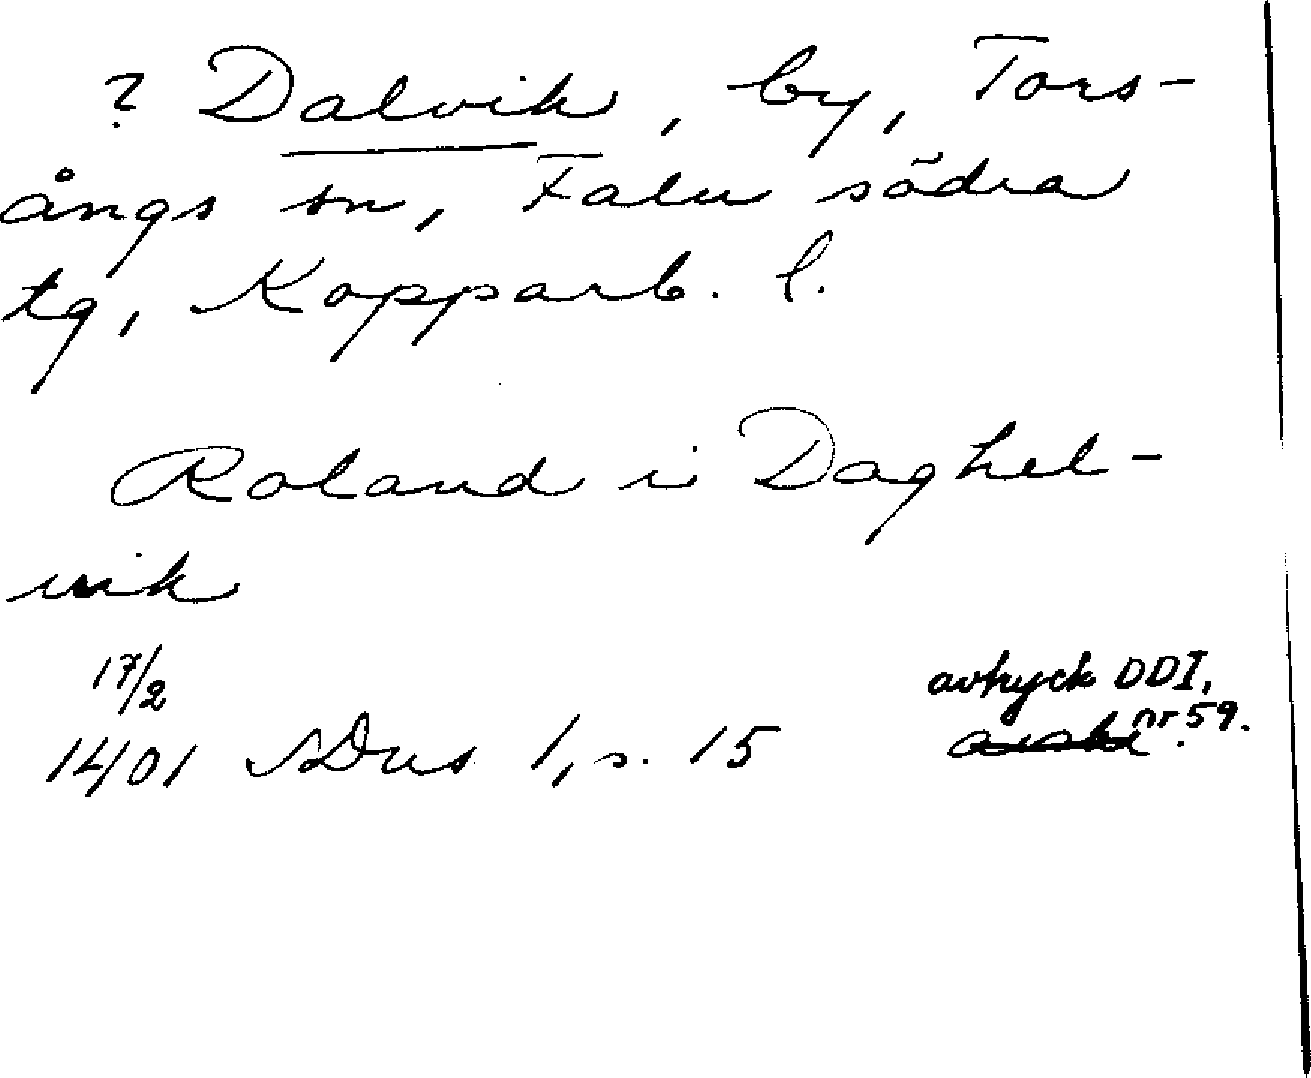 ? Dalvik, by, Tors-
ångs sn, Falu södra
tg, Kopparb. l.
Roland i Daghel-
wik
17/2
1401 SDns 1, s. 15
avtryck DDI,
nr 59.